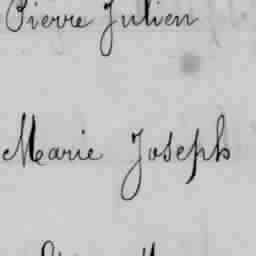 Pierre Julien
Marie Joseph